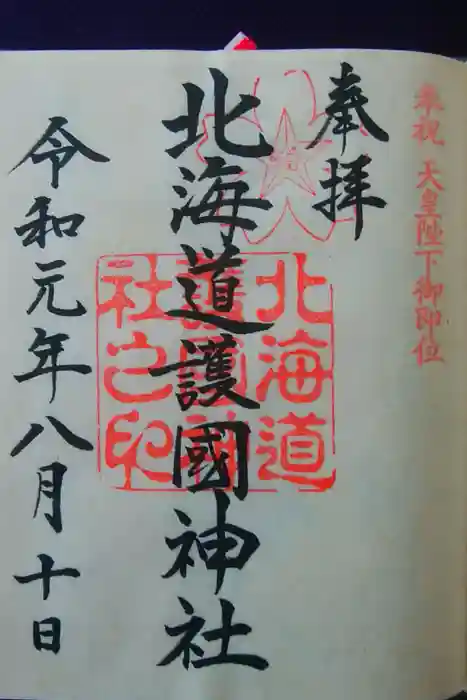 奉祝 天皇陛下御即位
奉拝
北海道護國神社
北海道
護國神
社之印
令和元年八月十日